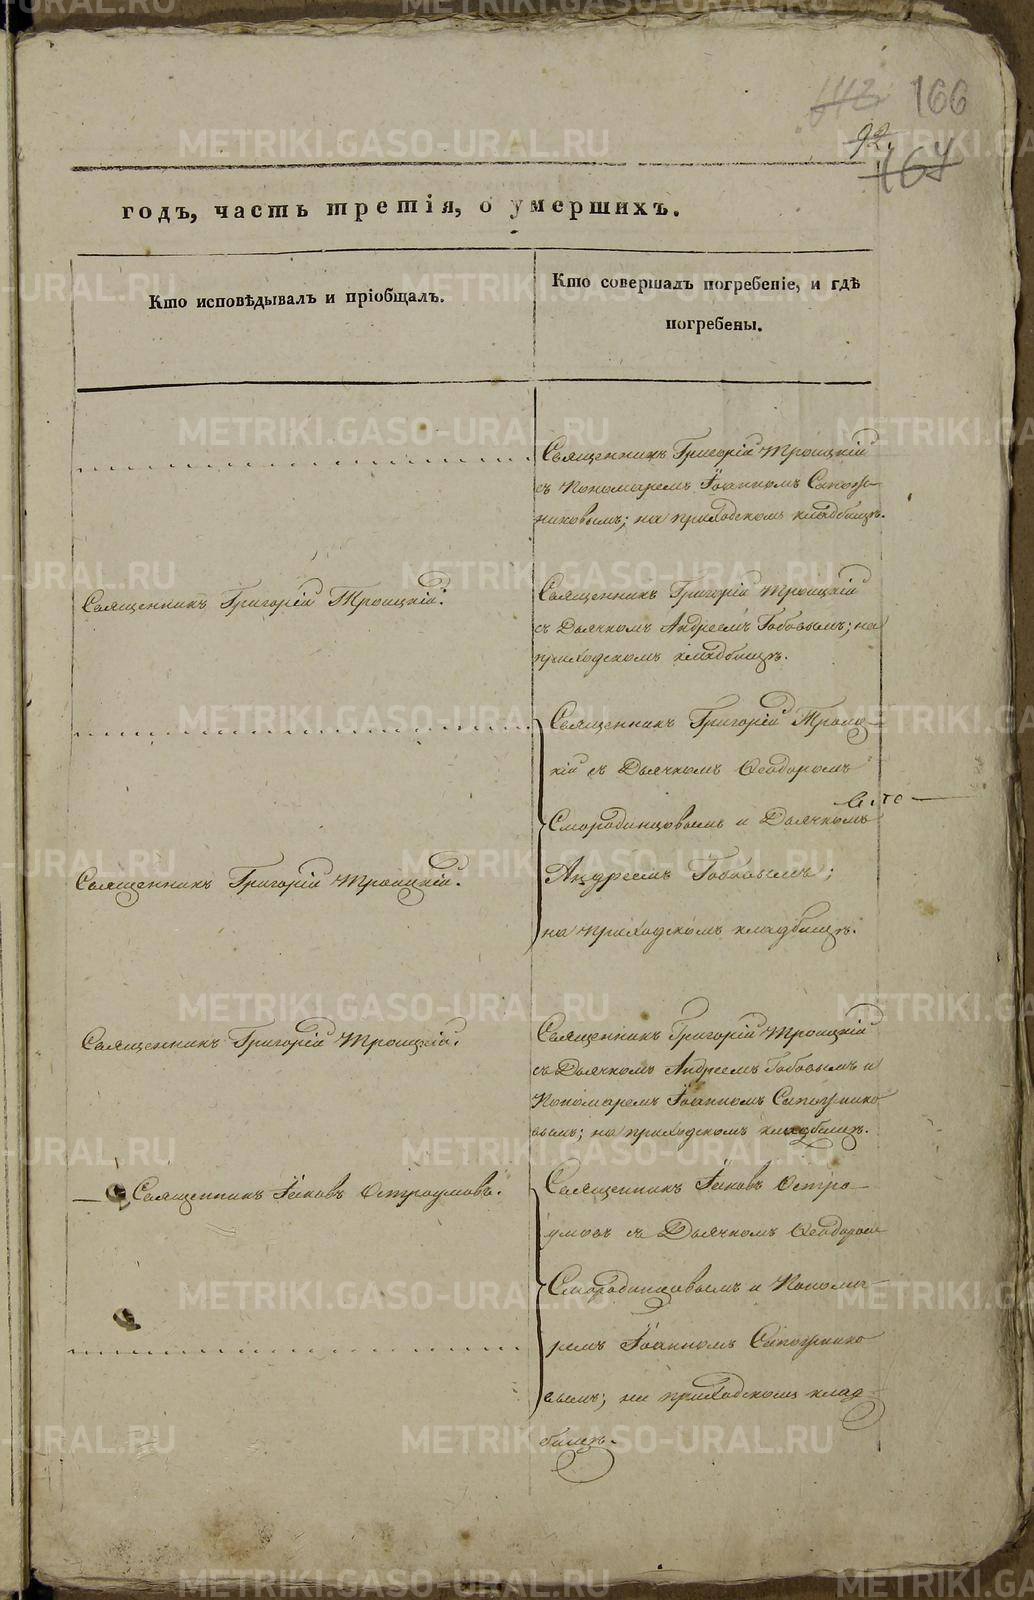 166
92.
164
годъ, часть третія, о умершихъ.
Кто исповѣдывалъ и пріобщалъ.
Кто совершалъ погребеніе, и гдѣ
погребены.
Священникъ Григорій Троицкій
съ Пономаремъ Іоанномъ Сапож-
никовымъ; на приходскомъ кладбищѣ.
Священникъ Григорій Троицкій.
Священникъ Григорій Троицкій
съ Дьячкомъ Андреемъ Бобовымъ; на
приходскомъ кладбищѣ.
Священникъ Григорій Троиц-
кій съ Дьячкомъ Ѳеодоромъ
Смородинцовымъ и Дьячкомъ
Священникъ Григорій Троицкій.
Андреемъ Бобовымъ;
на приходскомъ кладбищѣ.
Священникъ Григорій Троицкій.
Священникъ Григорій Троицкій
съ Дьячкомъ Андреемъ Бобовымъ и
Пономаремъ Іоанномъ Сапожнико
вымъ; на приходскомъ кладбищѣ.
Священникъ Іаковъ Остроумовъ.
Священникъ Іаковъ Остро-
умовъ съ Дьячкомъ Ѳеодоромъ
Смородинцовымъ и Понома-
ремъ Іоанномъ Сапожнико
вымъ; на приходскомъ клад-
бищѣ.
METRIKI.GASO-URAL.RU